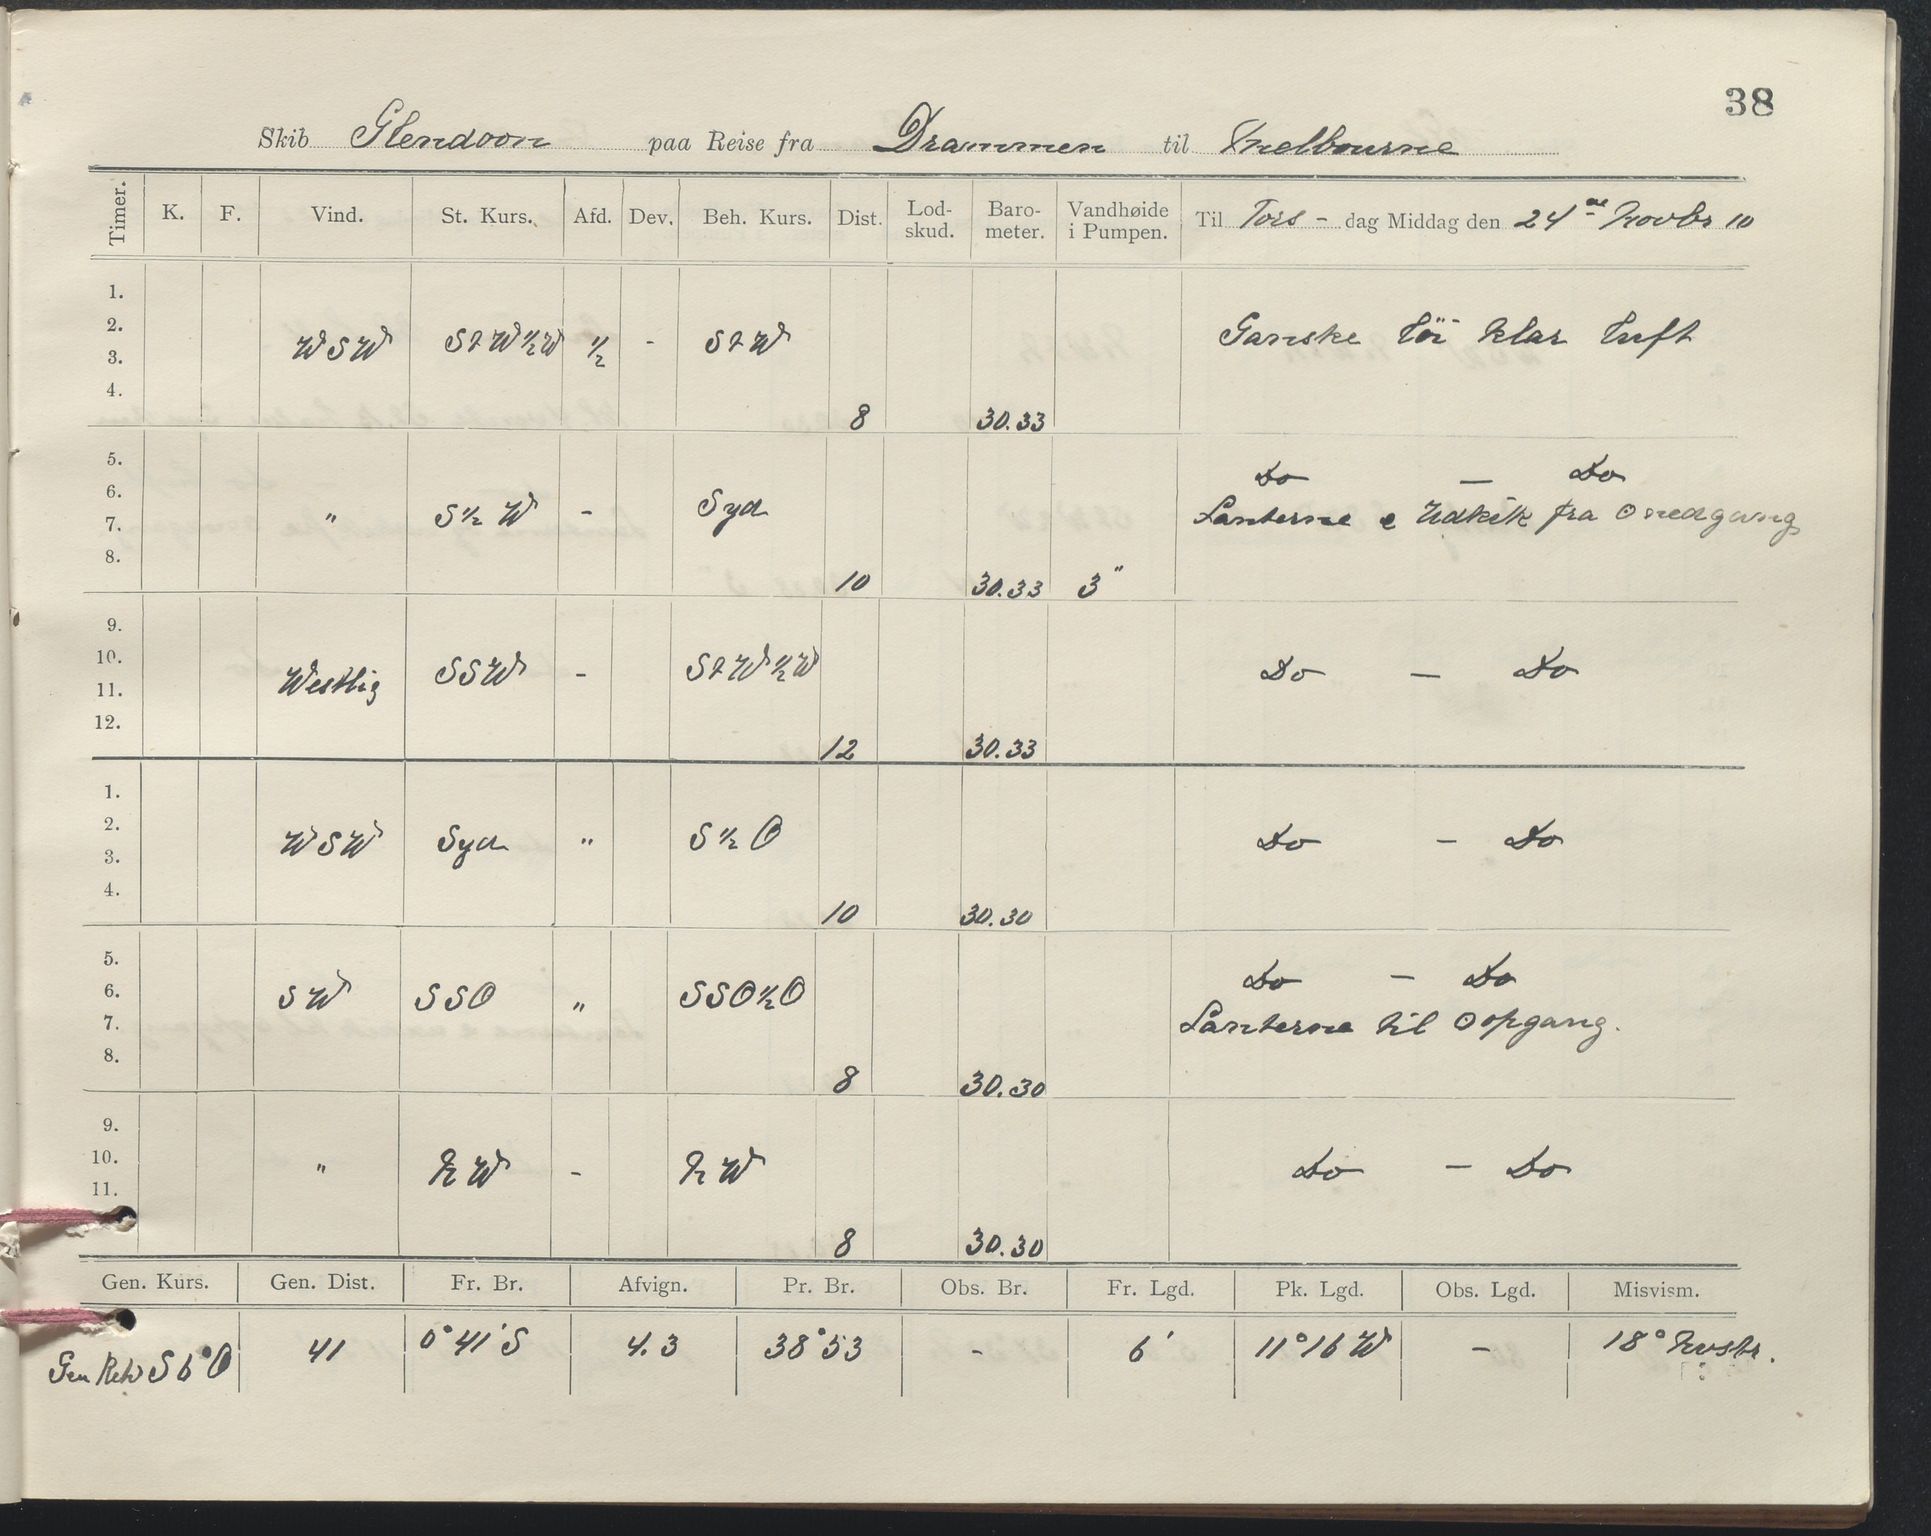 38
Skib Glendoon paa Reise fra Drammen til Melbourne
Timer. K. F. Vind. St. Kurs. Afd. Dev. Beh. Kurs. Dist. Lod-skud. Baro-meter. Vandhøide i Pumpen. Til Tors - dag Middag den 24de Novbr 10
1.
2.
3. WSW StW½W ½ - StW Ganske Töi klar luft
4. 8 30.33
5. Do - Do
6.
7. " S½W - Syd Lanterne e Udkik fra ʘ nedgang
8. 10 30.33 3"
9.
10.
11. Westlig SSW - StW½W Do - Do
12. 12 30.33
1.
2.
3. WSW Syd " S½O Do - Do
4. 10 30.30
5. Do - Do
6. SW SSO " SSO½O
7. Lanterne til ʘ opgang.
8. 8 30.30
9.
10. " NW - NW Do - Do
11.
8 30.30
Gen. Kurs. Gen. Dist. Fr. Br. Afvign. Pr. Br. Obs. Br. Fr. Lgd. Pk. Lgd. Obs. Lgd. Misvism.
Gen Retv S6°O 41 0°41'S 4.3 38°53 - 6' 11°16W - 18° Nvstr.